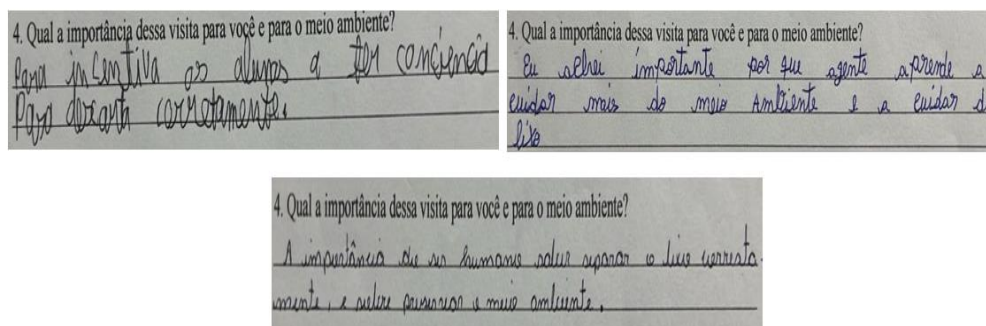 4. Qual a importância dessa visita para você e para o meio ambiente?
Para incentiva os alunos a ter conciencia
Para dexarta corretamente.
4. Qual a importância dessa visita para você e para o meio ambiente?
Eu achei importante por que agente aprende a
cuidar mais do meio Ambiente e a cuidar d
lixo
4. Qual a importância dessa visita para você e para o meio ambiente?
A importância do ser humano saber separar o lixo correta
mente, e sobre preservar o meio ambiente.